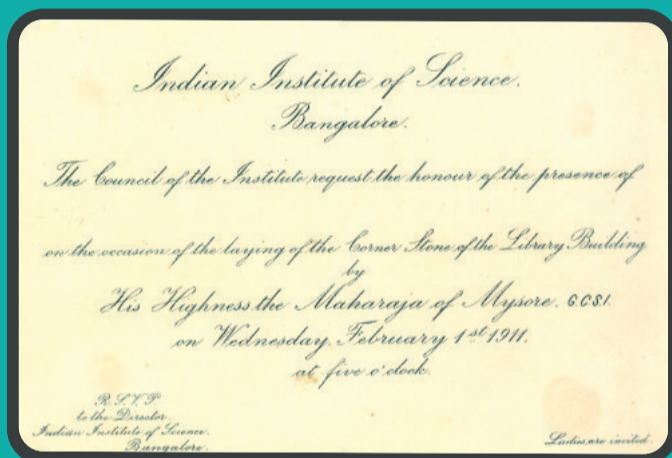 Indian Institute of Science.
Bangalore.
The Council of the Institute request the honour of the presence of
on the occasion of the laying of the Corner Stone of the Library Building
by
His Highness the Maharaja of Mysore. G.C.S.I.
on Wednesday. February 1st 1911.
at five o'clock.
R.S.V.P
to the Director.
Indian Institute of Science.
Bangalore.
Ladies are invited.